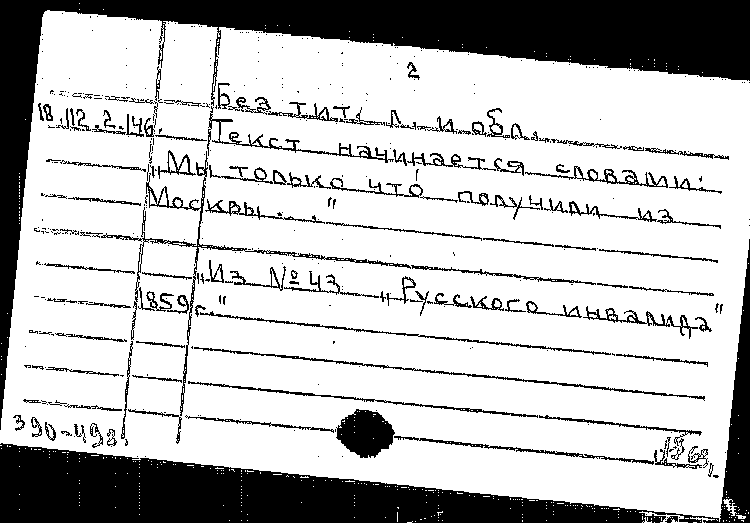 2
Без тит. л. и обл.
18.112.2.146.
Текст начинается словами:
„Мы только что получили из
Москвы..."
„Из №43 „Русского инвалида"
1859 г."
390-49